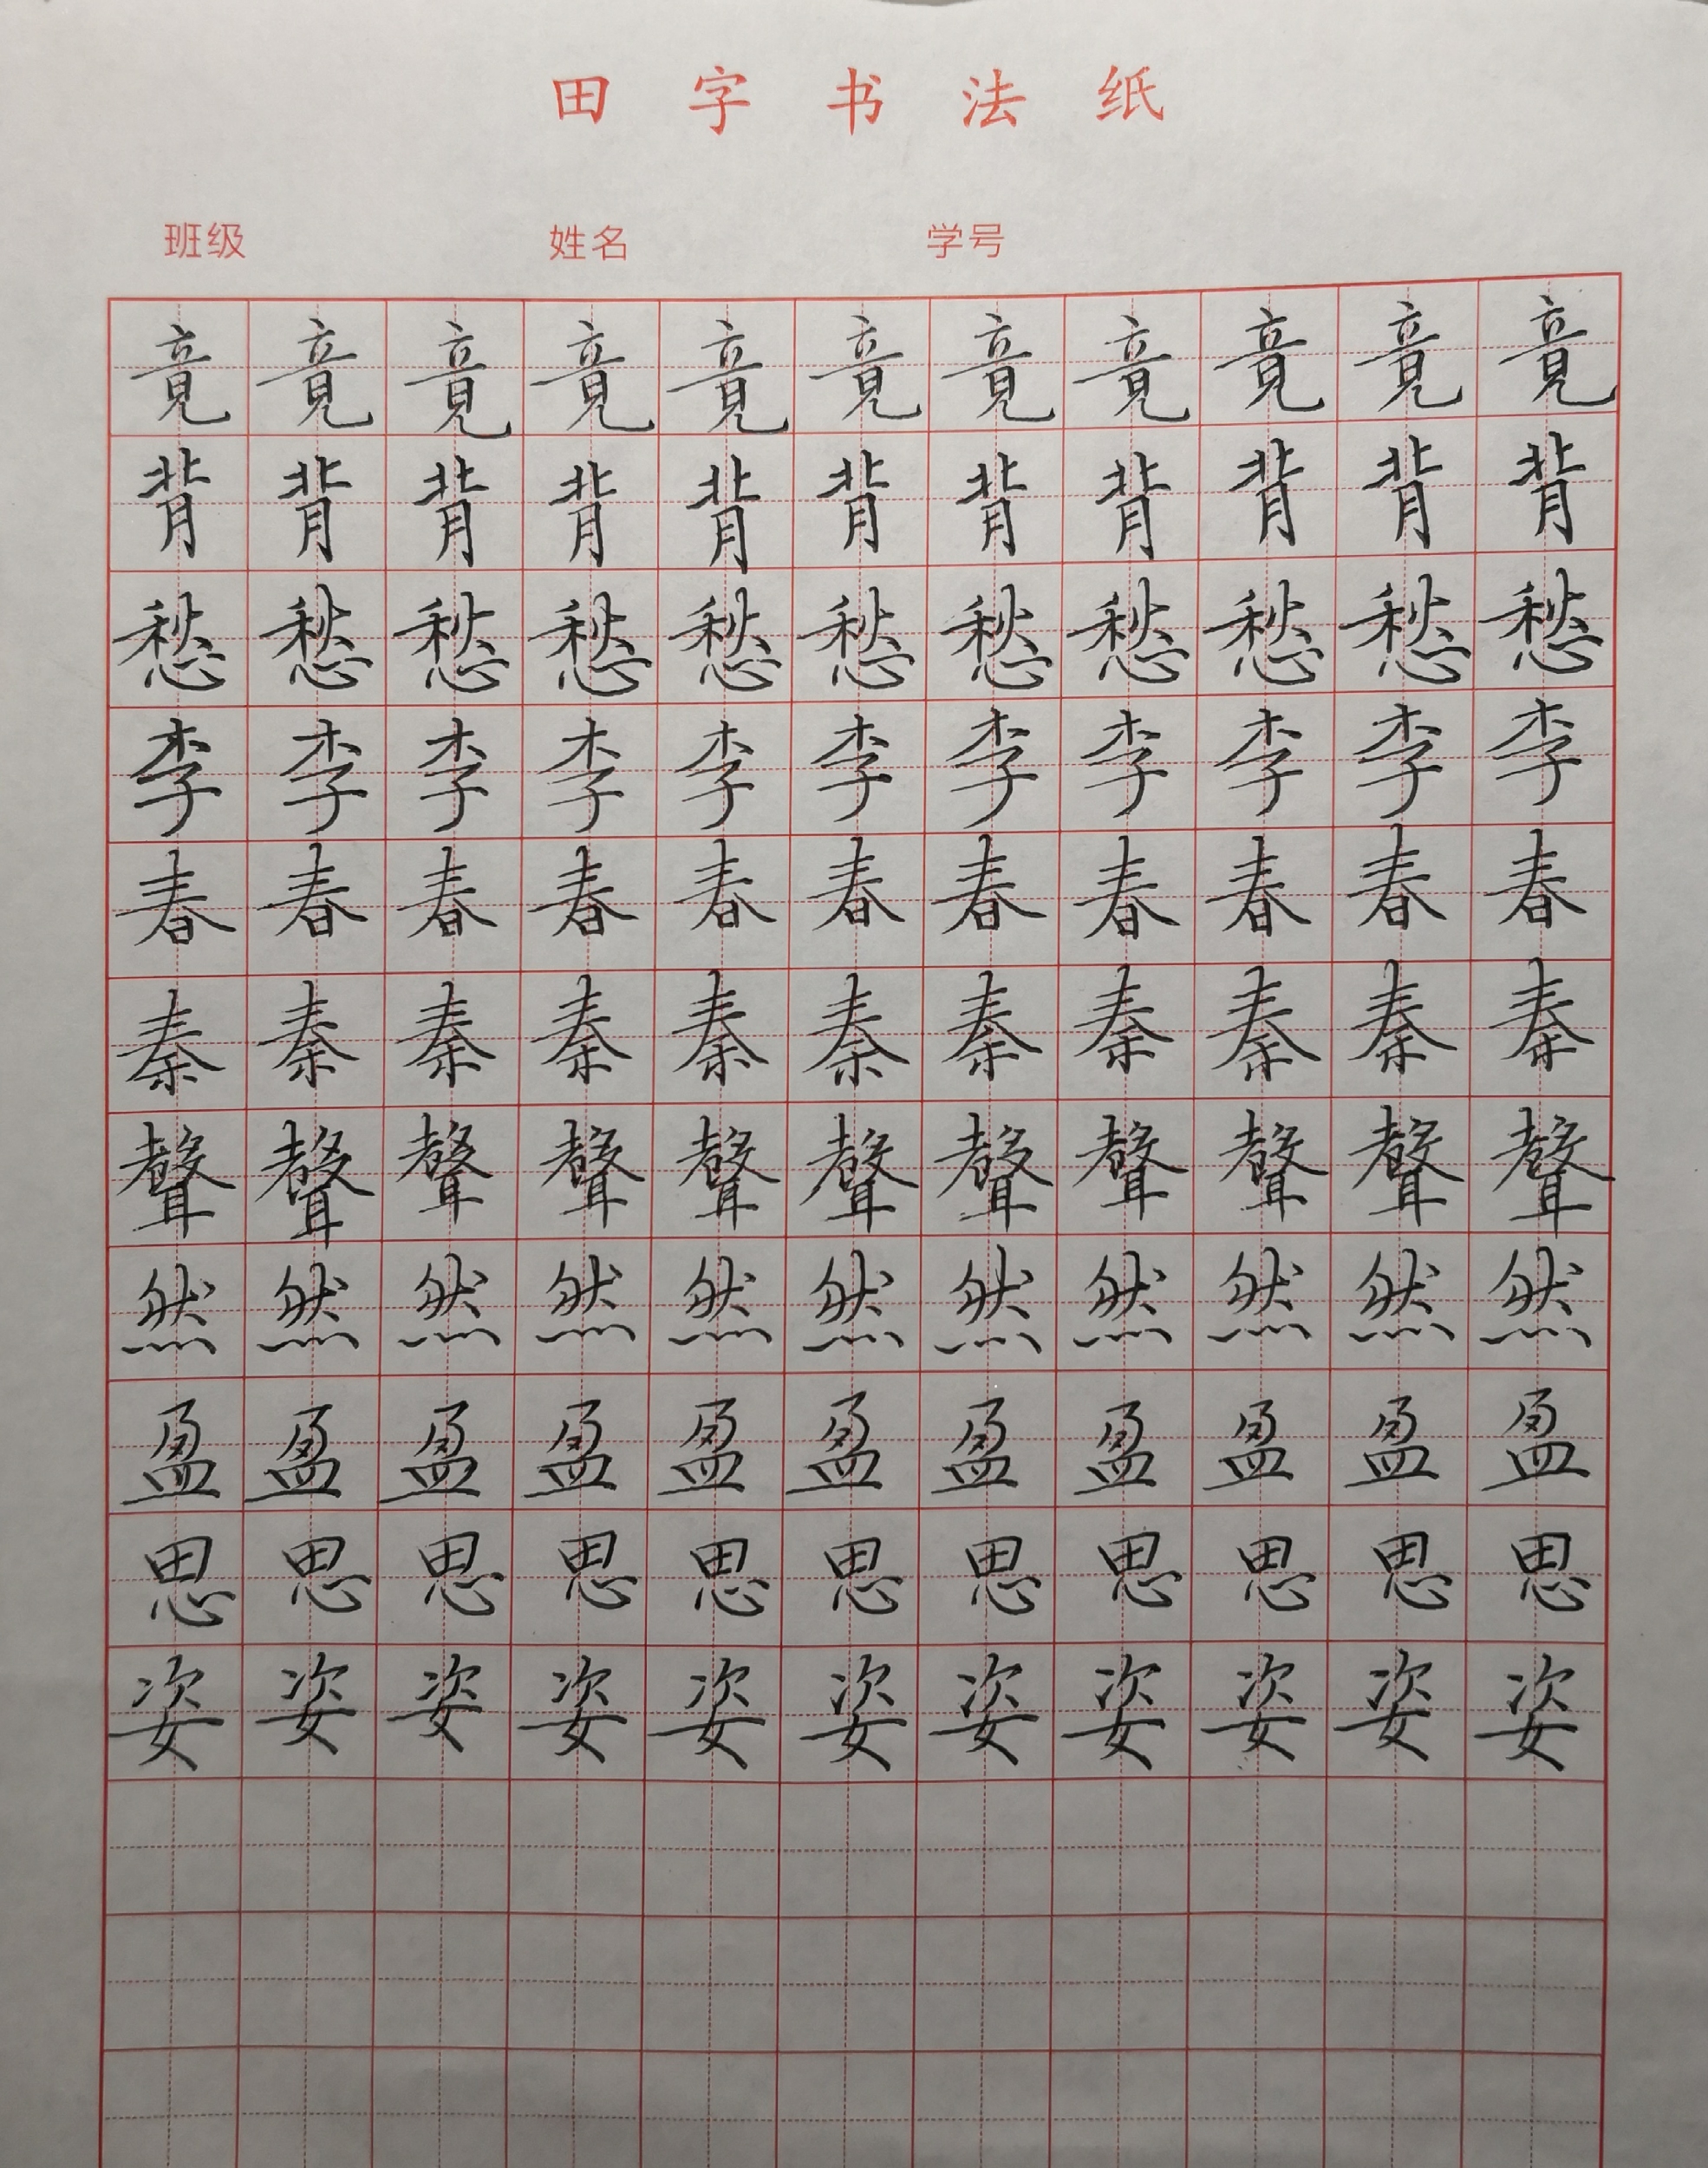 田字书法纸
班级 姓名 学号
竟竟竟竟竟竟竟竟竟竟竟
背背背背背背背背背背背
愁愁愁愁愁愁愁愁愁愁愁
李李李李李李李李李李李
春春春春春春春春春春春
秦秦秦秦秦秦秦秦秦秦秦
聲聲聲聲聲聲聲聲聲聲聲
然然然然然然然然然然然
盈盈盈盈盈盈盈盈盈盈盈
思思思思思思思思思思思
姿姿姿姿姿姿姿姿姿姿姿